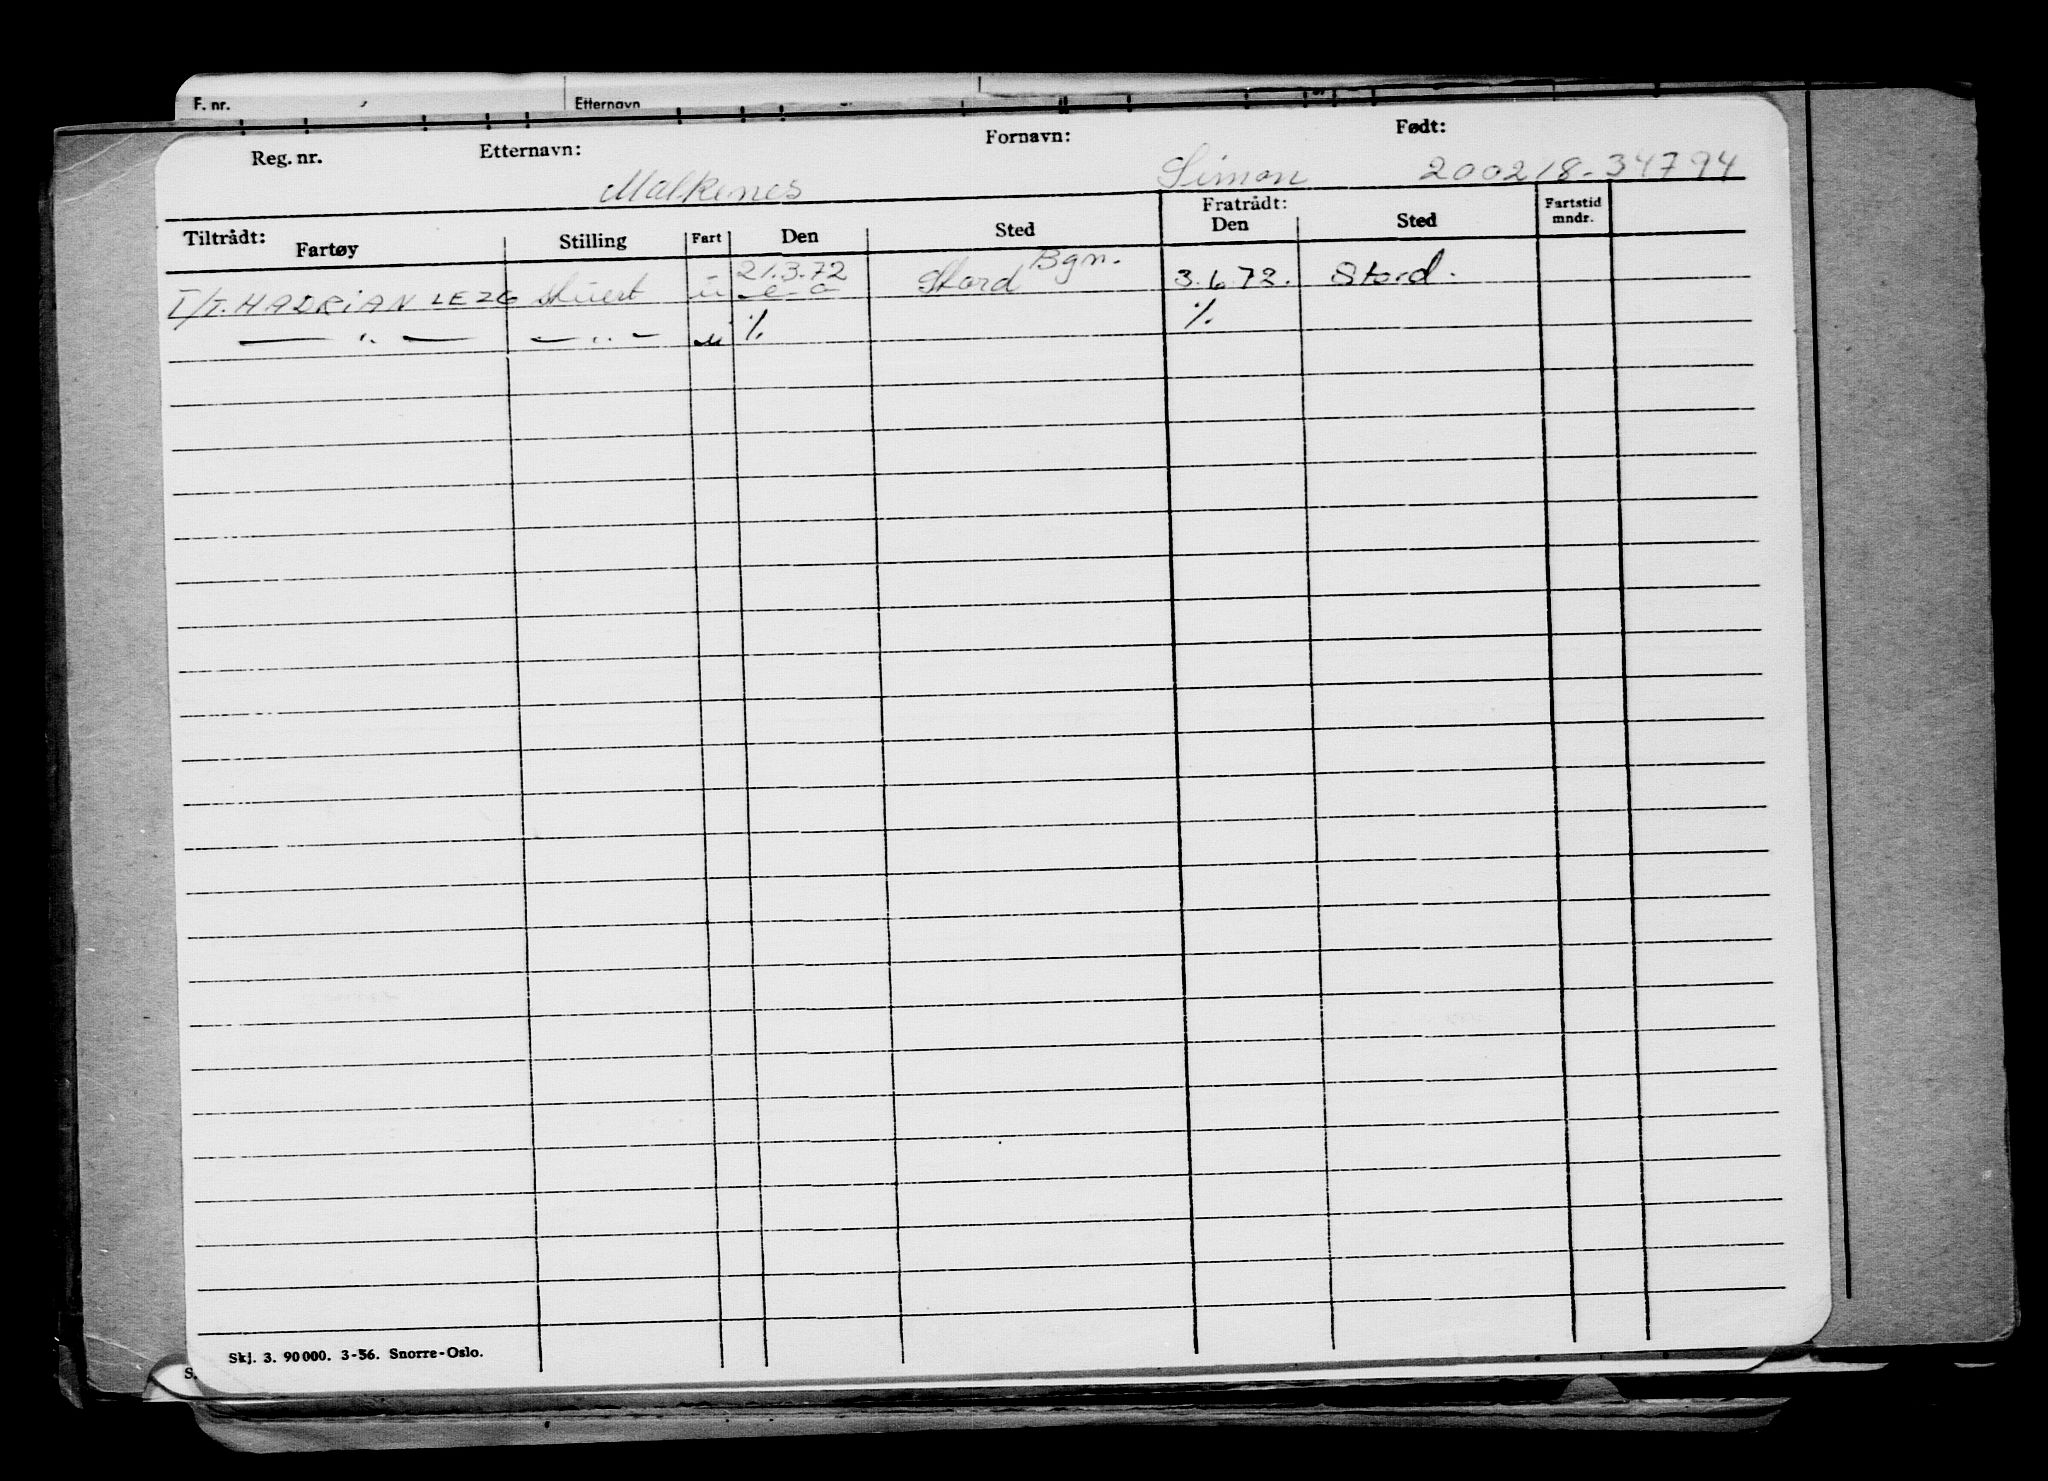 F. nr. Etternavn
Reg. nr. Etternavn: Fornavn: Født:
Malkenes Simon 200218-34794
Tiltrådt: Fratrådt:
Fartøy Stilling Fart Den Sted Den Sted Fartstid mndr.
21.3.72 Bgn.
T/T. HADRIAN LEZG Stuert u Stord 3.6.72. Stord.
— " — — " — u % %
Skj. 3. 90000. 3-56. Snorre-Oslo.
S.